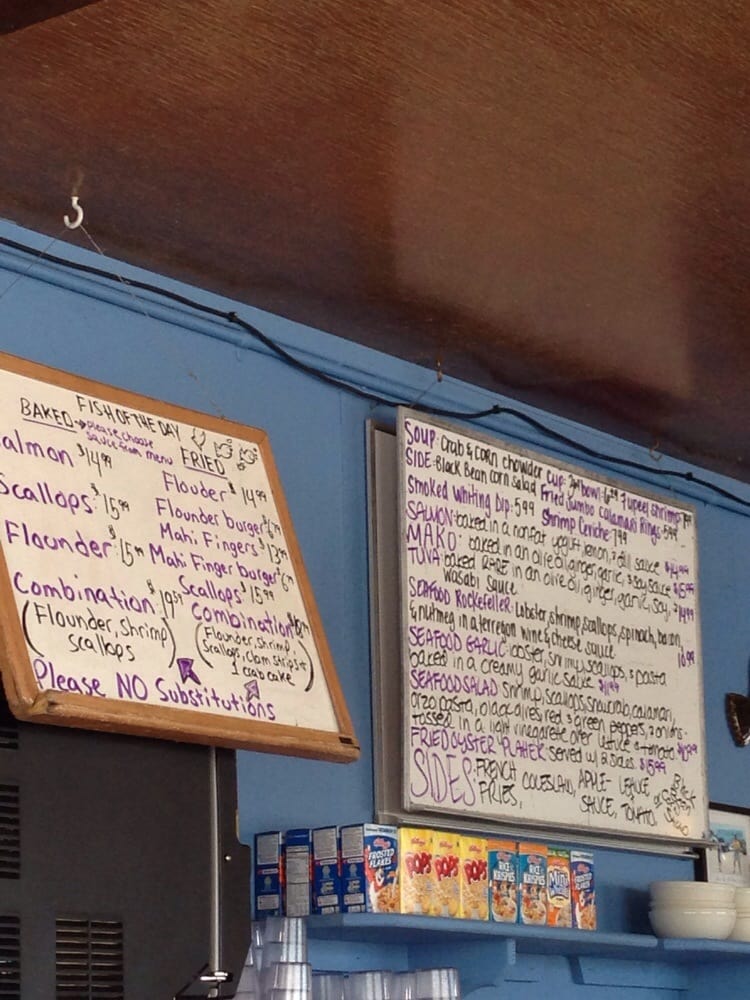 FISH OF THE DAY
BAKED → please choose
sauce from menu
FRIED
almon $14.99
Scallops: $15.99
Flounder: $15.99
Combination: $19.99
(Flounder, shrimp
scallops)
Flouder $14.99
Flounder burger
Mahi Fingers $13.99
Mahi Finger burger
Scallops $15.99
Combination
(Flounder, shrimp,
Scallops, clam strips +
1 crab cake)
Please NO Substitutions
SOUP: Crab & Corn chowder cup: bowl: 7 upeel shrimp:
SIDE: Black Bean corn salad Fried Jumbo Calamari Rings: 5.99
Smoked Whiting Dip: 5.99 Shrimp Ceviche: 7.99
SALMON: baked in a nonfat yogurt, lemon, & dill sauce $14.99
MAKO: baked in an olive oil, ginger, garlic, & soy sauce $15.99
TUNA: baked RARE in an olive oil, ginger, garlic, soy, &
wasabi sauce
SEAFOOD Rockefeller: Lobster, shrimp, scallops, spinach, bacon,
& nutmeg in a terregon wine & cheese sauce
SEAFOOD GARLIC: lobster, shrimp, scallops, & pasta
baked in a creamy garlic sauce
SEAFOOD SALAD shrimp, scallops, snowcrab, calamari,
orzo pasta, black olives, red & green peppers, & onions-
tossed in a light vinegarete over lettuce & tomato
FRIED OYSTER PLATTER served w/ 2 sides. $15.99
SIDES: FRENCH COLESLAW, APPLE- LETTUCE
FRIES, SAUCE, TOMATO
Kellogg's
FROSTED
FLAKES
POPS
POPS
POPS
RICE
KRISPIES
RICE
KRISPIES
Mini
FROSTED
FLAKES